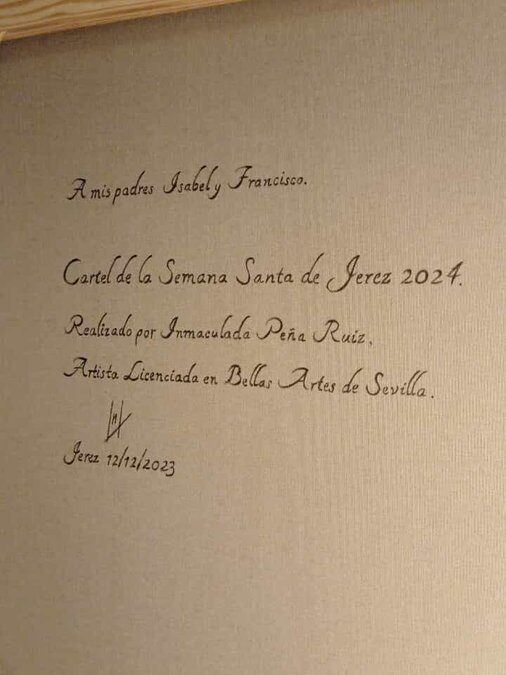 A mis padres Isabel y Francisco.
Cartel de la Semana Santa de Jerez 2024.
Realizado por Inmaculada Peña Ruiz,
Artista Licenciada en Bellas Artes de Sevilla.
Jerez 12/12/2023